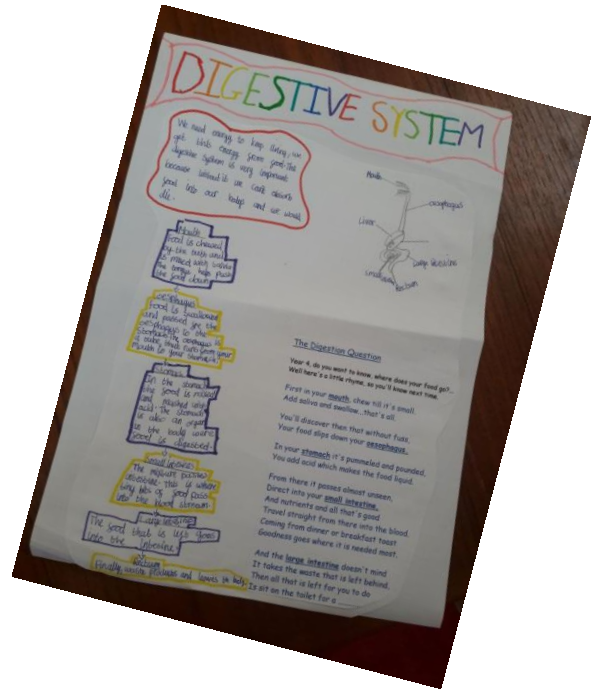 DIGESTIVE SYSTEM
We need energy to keep living, we
get this energy from food. The
digestive system is very important
because without it we can't absorb
food into our bodys and we would
die.
Mouth
oesophagus
Liver
Large intestine
Small
Rectum
Mouth
Food is chewed
by the teeth and
is mixed with saliva
The tongue helps push
the food down
oesophagus
Food is swallowed
and passed
oesophagus to the
stomach. The oesophagus is
a tube that runs from your
mouth to your stomach
Stomach
In the stomach
the food is mixed
and mushed with
acid. The stomach
is also an organ
in the body were
food is digested
Small intestine
The mixture passes
intestine this is where
tiny bits of food pass
into the blood stream
Large intestine
The food that is left goes
into the intestine
Rectum
Finally, waste products and leaves the body
The Digestion Question
Year 4, do you want to know, where does your food go?...
Well here's a little rhyme, so you'll know next time.
First in your mouth, chew till it's small.
Add saliva and swallow...that's all.
You'll discover then that without fuss,
Your food slips down your oesophagus.
In your stomach it's pummeled and pounded,
You add acid which makes the food liquid.
From there it passes almost unseen,
Direct into your small intestine.
And nutrients and all that's good
Travel straight from there into the blood.
Coming from dinner or breakfast toast
Goodness goes where it is needed most.
And the large intestine doesn't mind
It takes the waste that is left behind.
Then all that is left for you to do
Is sit on the toilet for a